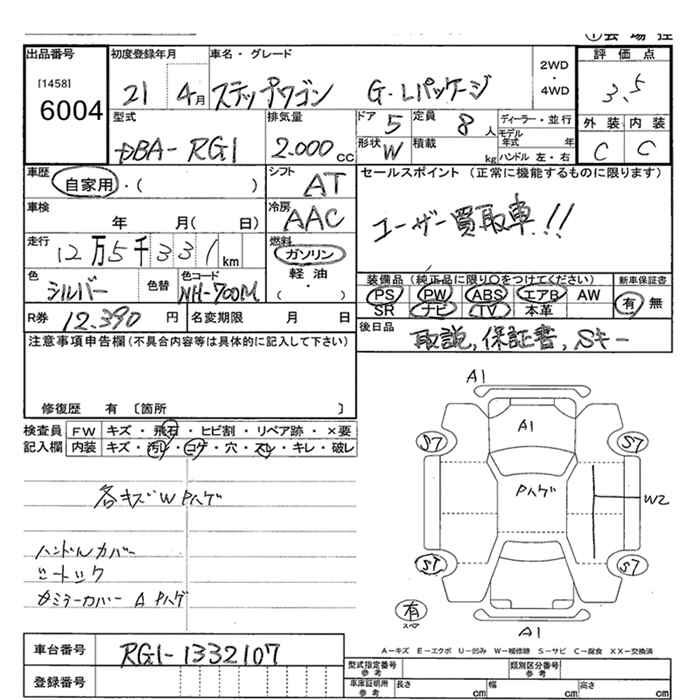 出品番号 [1458] 6004
初度登録年月 21 4月
車名・グレード ステップワゴン G・Lパッケージ
2WD・4WD
評価点 3.5
外装 内装
C C
型式 DBA-RG1
排気量 2.000cc
ドア 5 定員 8人
形状 W 積載 kg
ディーラー・並行
モデル年式 年
ハンドル 左・右
車歴 自家用・( )
シフト AT
車検 年 月( 日)
冷房 AAC
走行 12万5千331km
燃料 ガソリン
軽油
( ・ )
色 シルバー 色替
色コード NH-700M
R券 12.390円 名変期限 月 日
セールスポイント (正常に機能するものに限ります)
ユーザー買取車!!
装備品 (純正品に限り○をつけてください) 新車保証書
PS PW ABS エアB AW 有・無
SR ナビ TV 本革
後日品 取説,保証書,Sキー
注意事項申告欄(不具合内容等は具体的に記入して下さい)
修復歴 有 〔箇所 〕
検査員 FW キズ・飛石・ヒビ割・リペア跡・×要
記入欄 内装 キズ・汚レ・コゲ・穴・スレ・キレ・破レ
各キズW Pハゲ
ハンドルカバー
シートック
ミラーカバー A Pハゲ
A1
A1
S7 S7
Pハゲ
W2
S7 S7
有 スペア
A1
A-キズ E-エクボ U-凹み W-補修跡 S-サビ C-腐食 XX-交換済
車台番号 RG1-1332107
登録番号
型式指定番号 参考 類別区分番号 参考
車庫証明用 参考 長さ cm 幅 cm 高さ cm